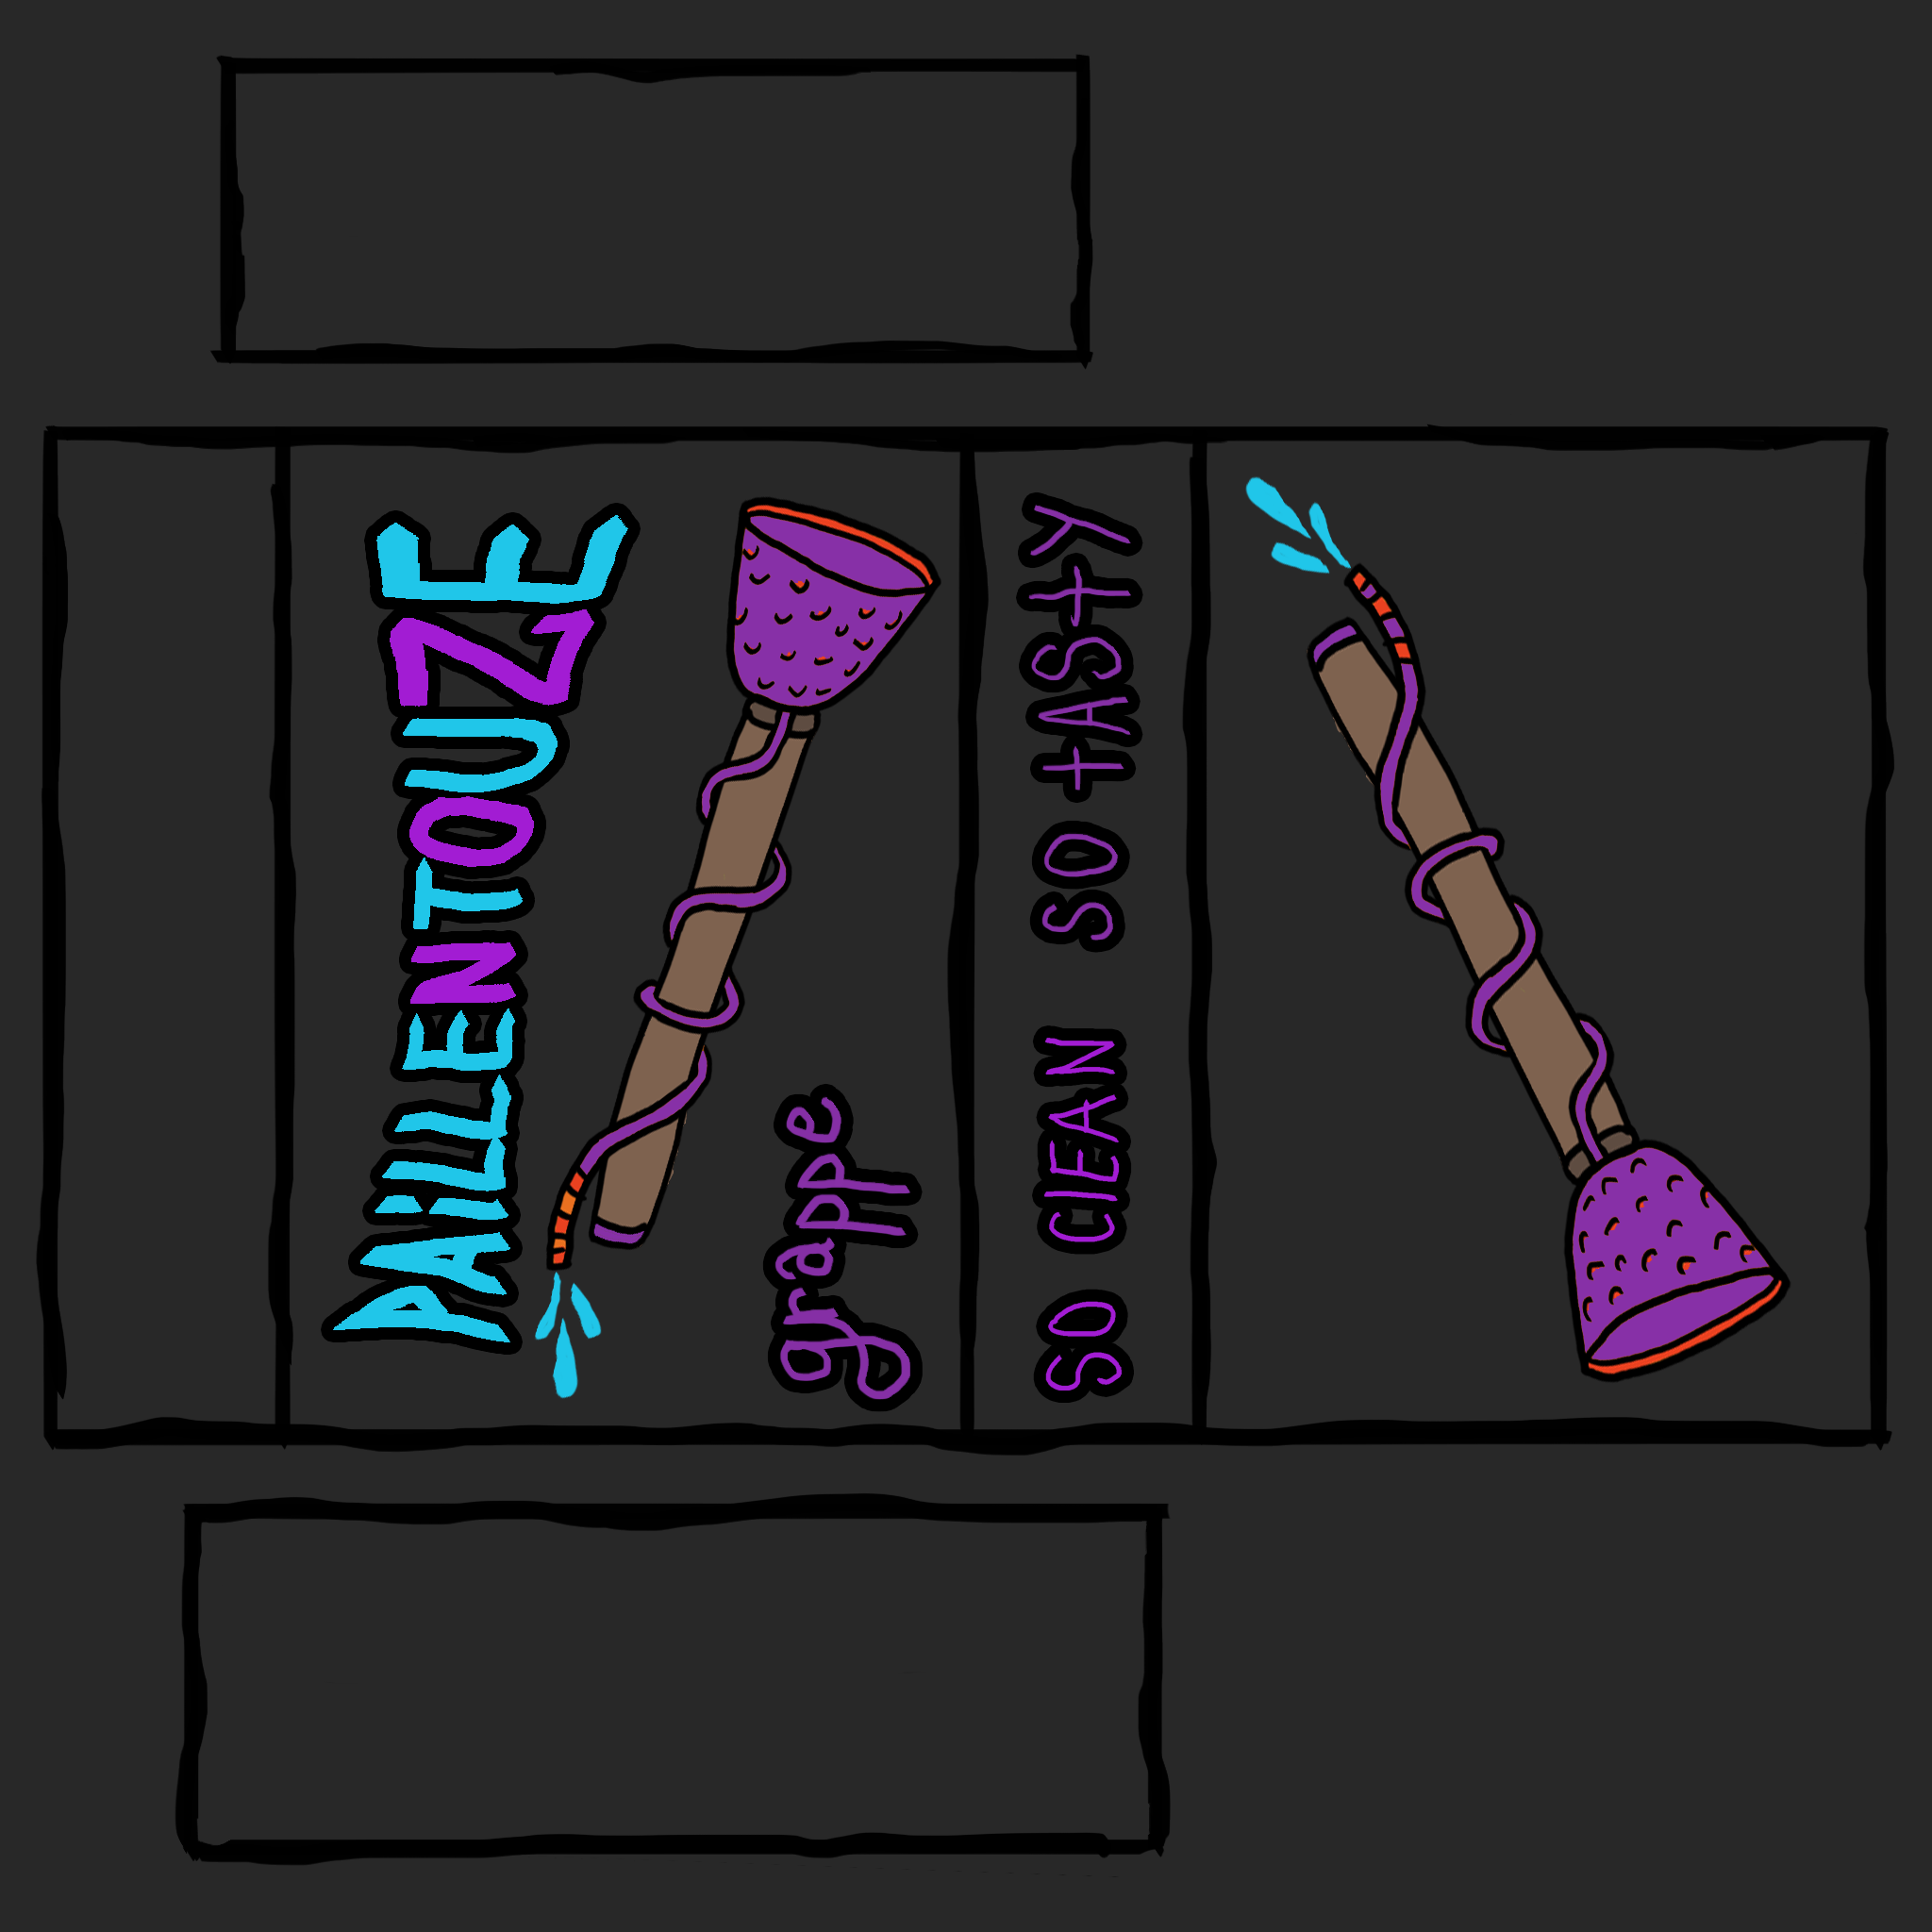 PAiLLENTOUZE
grappe
SO CLEAN SO tASttY